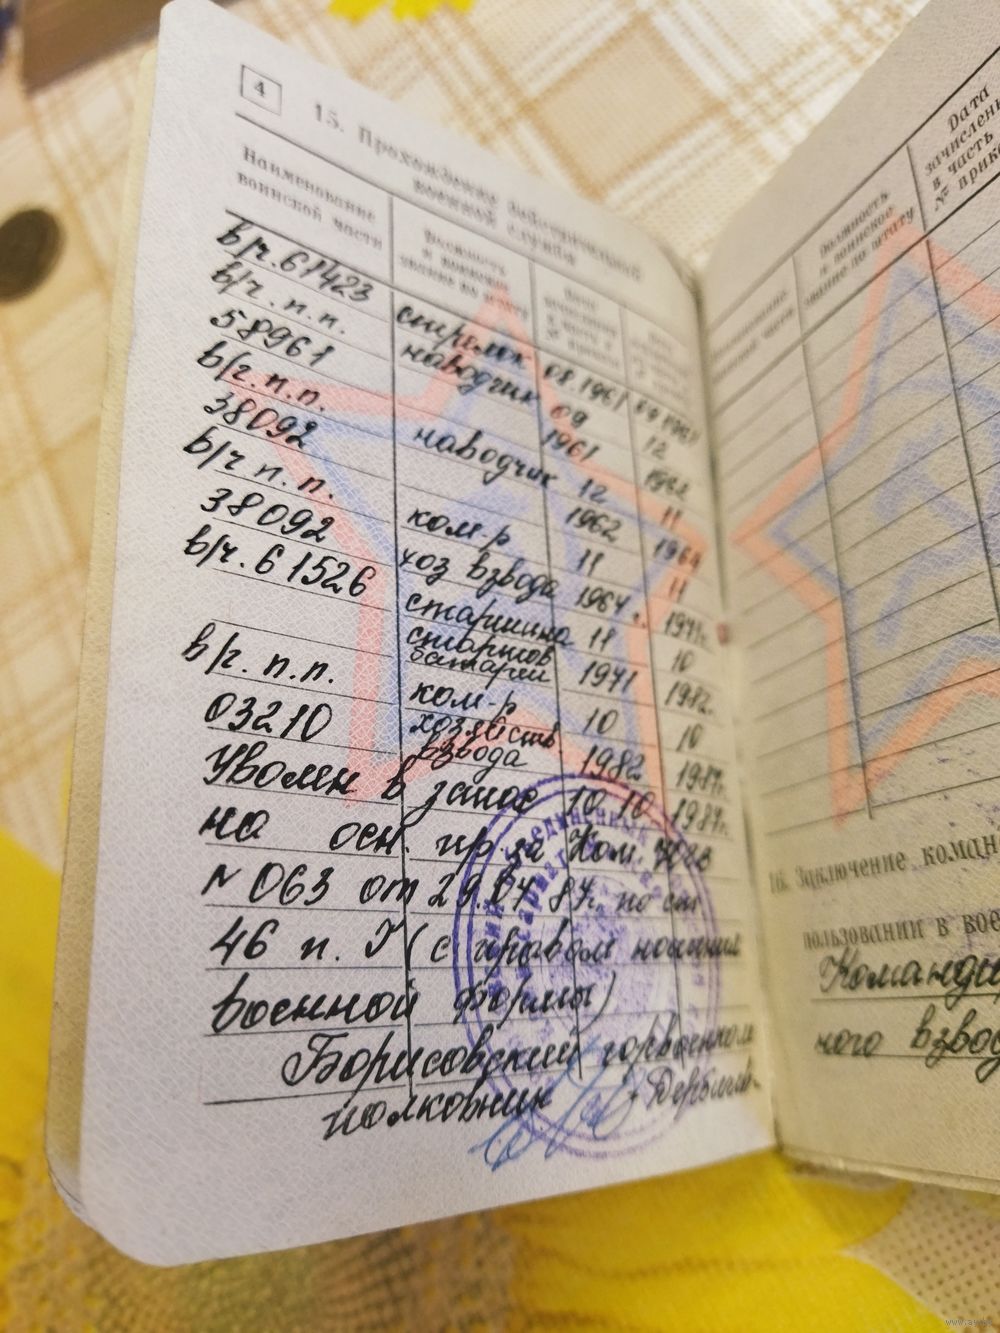 4
15. Прохождение действительной
военной службы
Наименование
воинской части
Должность
и военное
звание по штату
в/ч. 61423 стрелок 08.1961 09.1961
в/ч. п.п. наводчик 09 12
58961 1961 1962
в/ч. п.п. наводчик 12 11
38092 1962 1964
в/ч п.п. ком-р 11 11
38092 хоз взвода 1964 г. 1971г.
в/ч. 61526 старшина 11 10
батареи 1971 1982г.
в/ч. п.п. ком-р 10 10
03210 хозяйств. 1982 1987г.
взвода
Уволен в запас 10.10 1987г.
на осн. пр-за Ком.
№ 063 от 29.07.87г. по ст
46 п. (с правом ношения
военной формы)
Борисовский горвоенком
полковник
Наименование
воинской части
Должность
и воинское
звание по штату
Дата
зачислени
в часть
№ прика
16. Заключение коман
пользовании в вое
Командир
ного взвод